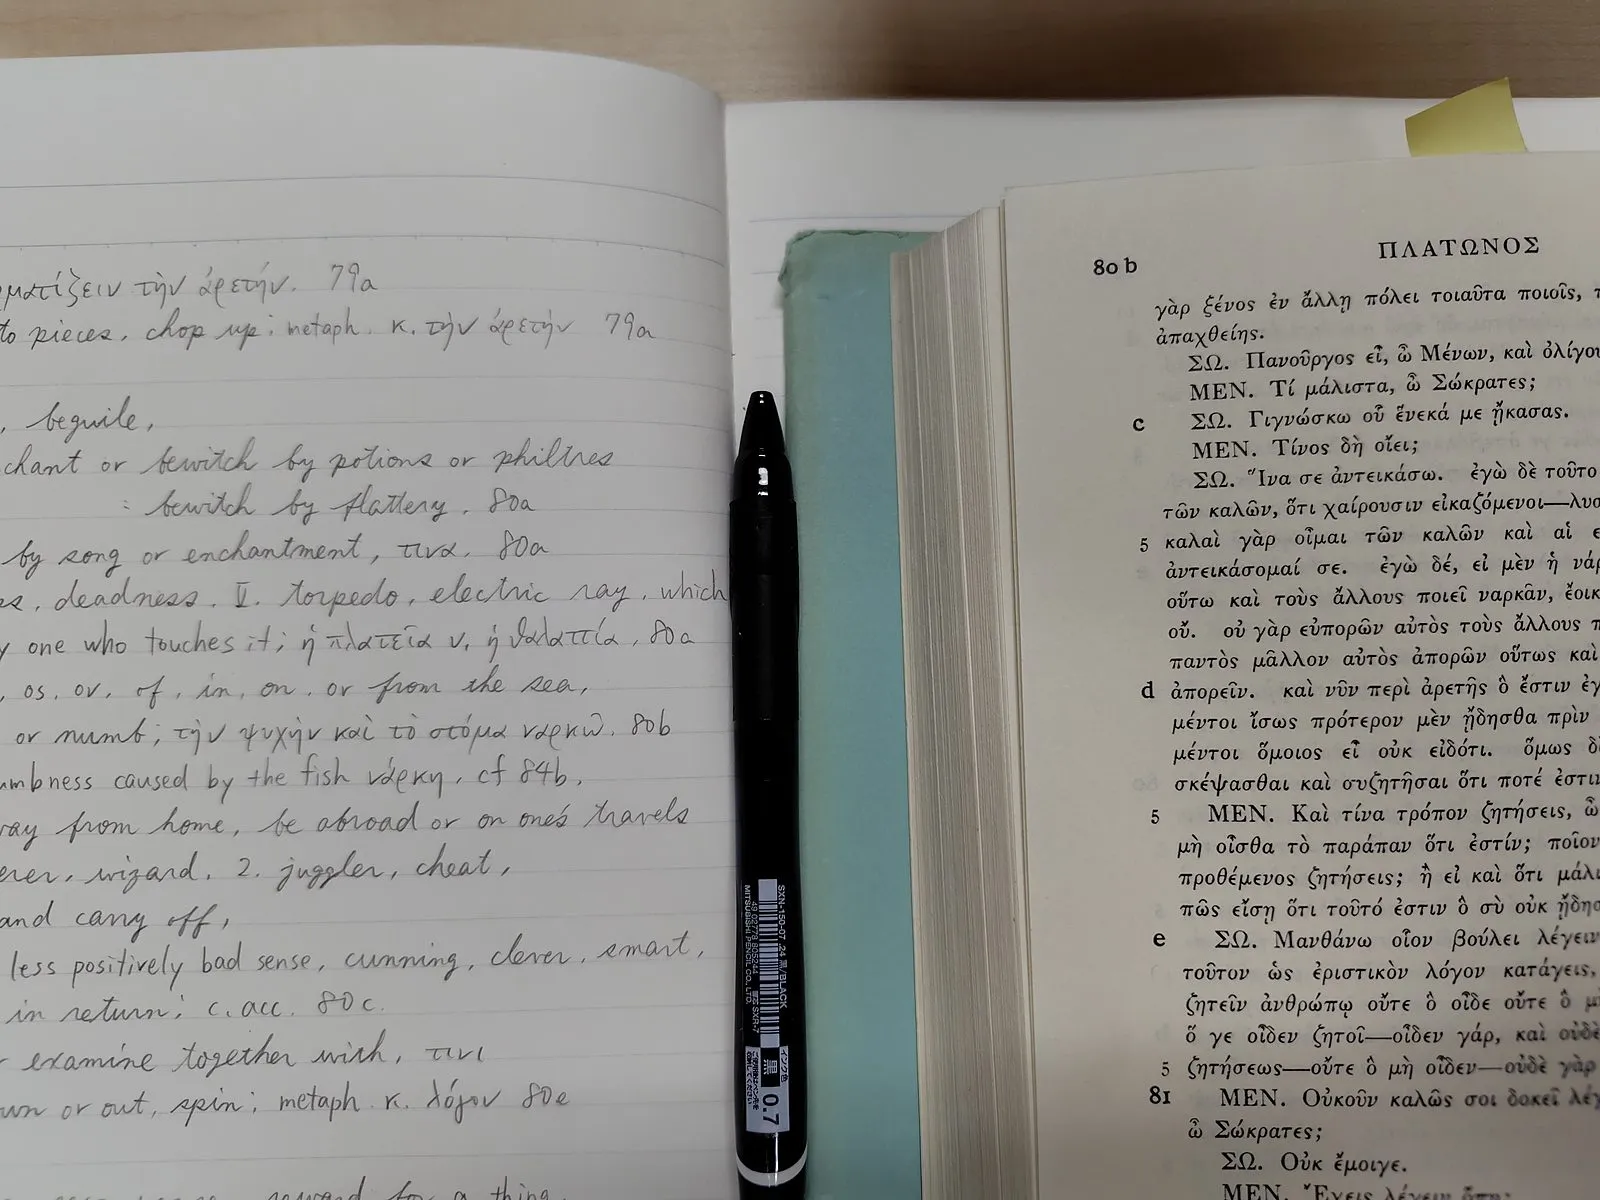 ματίζειν τὴν ἀρετήν. 79a
to pieces, chop up; metaph. κ. τὴν ἀρετὴν 79a
, beguile,
chant or bewitch by potions or philtres
: bewitch by flattery, 80a
by song or enchantment, τινα. 80a
deadness. II. torpedo, electric ray, which
y one who touches it; ἡ πλατεῖα ν. ἡ θαλαττία, 80a
, ος, ον, of, in, on, or from the sea,
or numb; τὴν ψυχὴν καὶ τὸ στόμα ναρκῶ. 80b
umbness caused by the fish νάρκη, cf 84b,
way from home, be abroad or on one's travels
erer, wizard, 2. juggler, cheat,
and carry off,
less positively bad sense, cunning, clever, smart,
in return; c. acc. 80c.
examine together with, τινι
wn or out, spin; metaph. κ. λόγον 80e
reward for a thing,
SXN-150-07 .24 黒/BLACK
49 02778 805244 替芯 SXR-7
MITSUBISHI PENCIL CO., LTD.
インク色
黒 0.7
80 b ΠΛΑΤΩΝΟΣ
γὰρ ξένος ἐν ἄλλῃ πόλει τοιαῦτα ποιοῖς,
ἀπαχθείης.
ΣΩ. Πανοῦργος εἶ, ὦ Μένων, καὶ ὀλίγου
ΜΕΝ. Τί μάλιστα, ὦ Σώκρατες;
c ΣΩ. Γιγνώσκω οὗ ἕνεκά με ᾔκασας.
ΜΕΝ. Τίνος δὴ οἴει;
ΣΩ. Ἵνα σε ἀντεικάσω. ἐγὼ δὲ τοῦτο
τῶν καλῶν, ὅτι χαίρουσιν εἰκαζόμενοι—λυσ
5 καλαὶ γὰρ οἶμαι τῶν καλῶν καὶ αἱ ε
ἀντεικάσομαί σε. ἐγὼ δέ, εἰ μὲν ἡ νάρ
οὕτω καὶ τοὺς ἄλλους ποιεῖ ναρκᾶν, ἔοικ
οὔ. οὐ γὰρ εὐπορῶν αὐτὸς τοὺς ἄλλους π
παντὸς μᾶλλον αὐτὸς ἀπορῶν οὕτως καὶ
d ἀπορεῖν. καὶ νῦν περὶ ἀρετῆς ὃ ἔστιν ἐγ
μέντοι ἴσως πρότερον μὲν ᾔδησθα πρὶν
μέντοι ὅμοιος εἶ οὐκ εἰδότι. ὅμως δὲ
σκέψασθαι καὶ συζητῆσαι ὅτι ποτέ ἐστιν
5 ΜΕΝ. Καὶ τίνα τρόπον ζητήσεις, ὦ
μὴ οἶσθα τὸ παράπαν ὅτι ἐστίν; ποῖον
προθέμενος ζητήσεις; ἢ εἰ καὶ ὅτι μάλι
πῶς εἴσῃ ὅτι τοῦτό ἐστιν ὃ σὺ οὐκ ᾔδησ
e ΣΩ. Μανθάνω οἷον βούλει λέγειν
τοῦτον ὡς ἐριστικὸν λόγον κατάγεις,
ζητεῖν ἀνθρώπῳ οὔτε ὃ οἶδε οὔτε ὃ μὴ
ὅ γε οἶδεν ζητοῖ—οἶδεν γάρ, καὶ οὐδὲ
5 ζητήσεως—οὔτε ὃ μὴ οἶδεν—οὐδὲ γὰρ
81 ΜΕΝ. Οὐκοῦν καλῶς σοι δοκεῖ λέγ
ὦ Σώκρατες;
ΣΩ. Οὐκ ἔμοιγε.
ΜΕΝ. Ἔχεις λέγειν ὅπῃ;